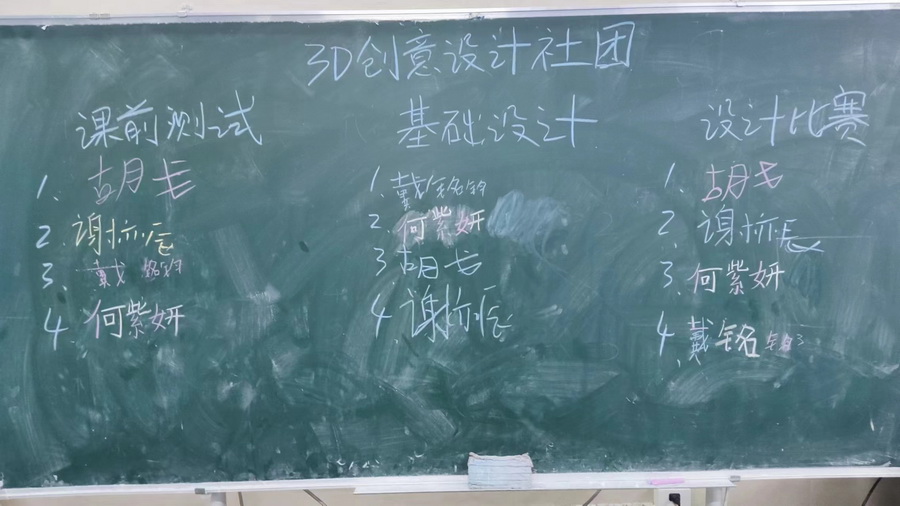 3D创意设计社团
课前测试
1. 胡弋
2. 谢沵辰
3. 戴铭
4. 何紫妍
基础设计
1. 戴铭
2. 何紫妍
3. 胡弋
4. 谢辰
设计比赛
1. 胡弋
2. 谢辰
3. 何紫妍
4. 戴铭